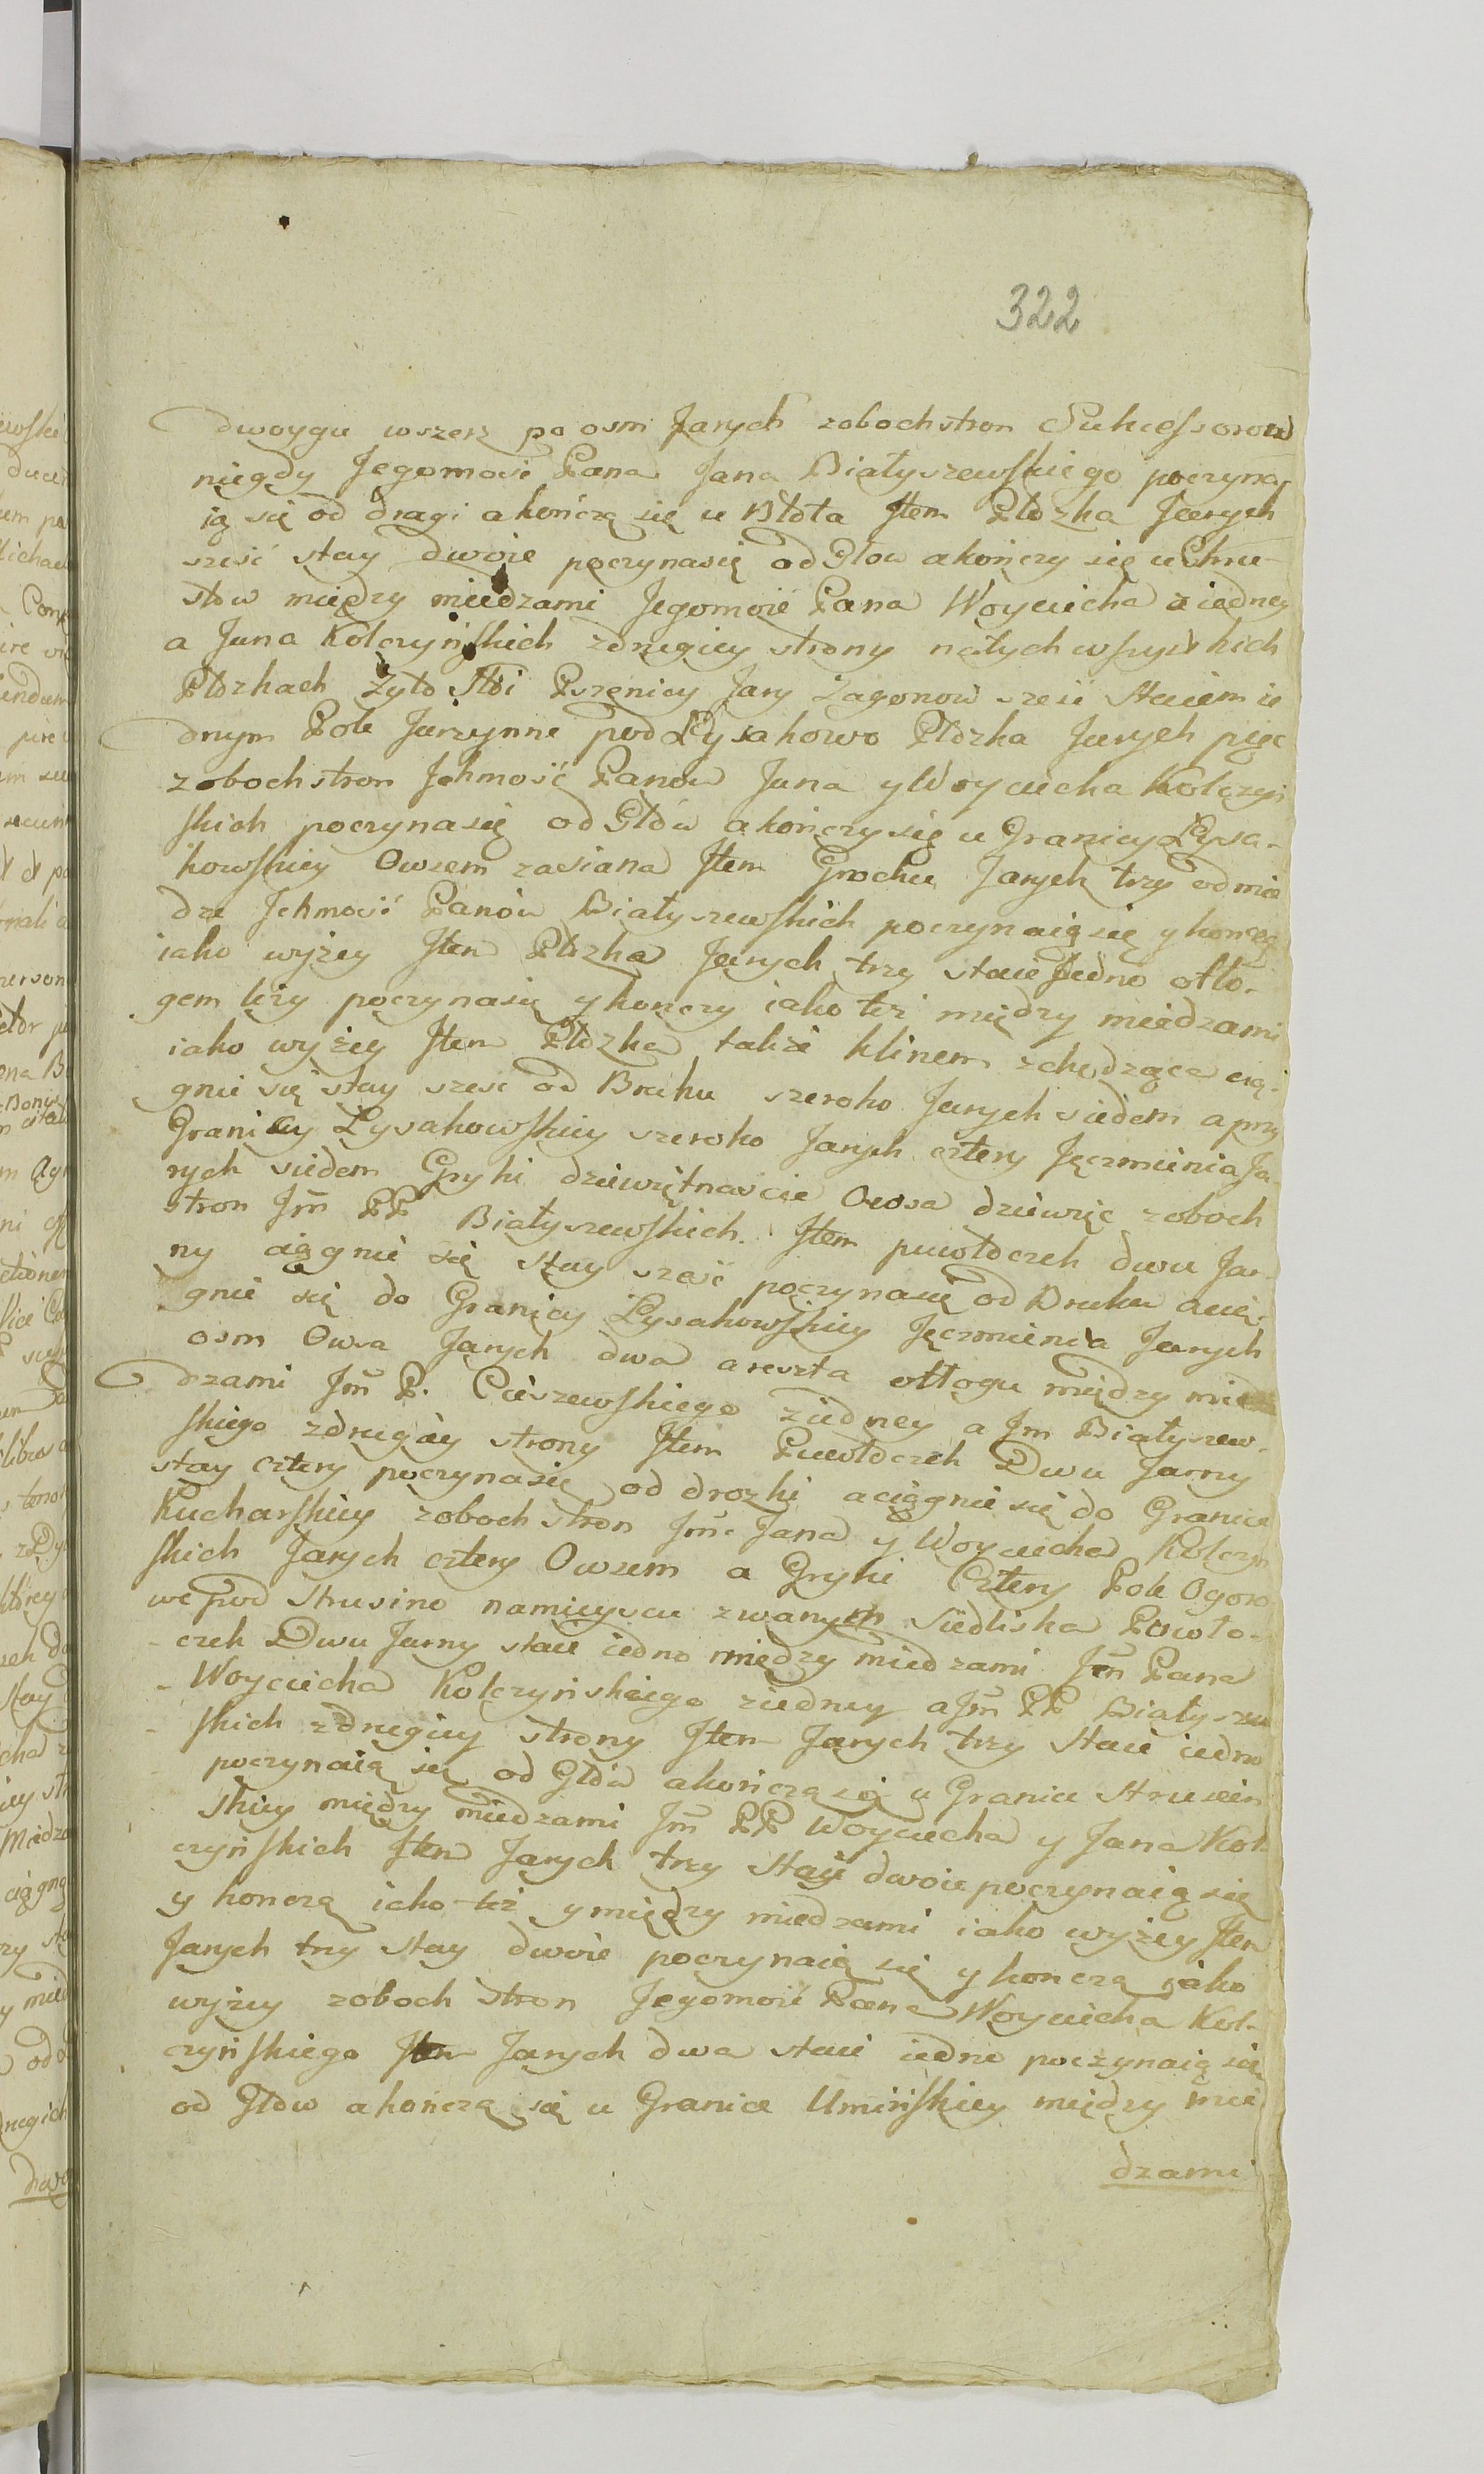 322
dwoygu wszerz po osm Jarych zobochstron Sukcessorow
niegdy Jegomość Pana Jana Białyszewskiego poczyna
ią się od dragi akończą się u Błota Item Płozka Jarych
sześć stay dwoie poczynasię od Głow akończy się u Chru-
stow między miedzami Jegomość Pana Woyciecha ziedney
a Jana Kolczyńskich zdrugiey strony natych wszystkich
Płozkach Zyto Stoi Pszenicy Jary Zagonow sześć staiem ie
dnym Pole Jarzynne pod Łysakowo Płozka Jarych pięć
zobochstron Jchmość Panow Jana y Woyciecha Kolczyń
skich poczynasię od Głów akończysię u Granicy Łysa-
kowskiey Owsem zasiana Item Grochu Jarych trzy odmie
dze Jchmość Panów Białyszewskich poczynaią się ykonczą
iako wyżey Item Płozka Jarych trzy staie Jedno otło-
gem leży poczynasię ykonczy iako też między miedzami
iako wyżey Item Płozka także klinem zchodząca cią-
gnie się stay sześc od Bruku szeroko Jarych siedem aprzy
Granicy Łysakowskiey szeroko Jarych cztery Jęczmienia Ja-
rych siedem Gryki dziewiętnascie Owsa dziewięc zoboch
stron Jm̃ PP Białyszewskich. Item puwłoczek dwu Jar-
ny ciągnie się stay sześć poczynasię od Bruku acią-
gnie się do Granicy Łysakowskiey Jęczmienia Jarych
osm Owsa Jarych dwa areszta otłogu między mie
dzami Jm̃ P. Cieszewskiego ziedney a Jm Białyszew-
skiego zdrugiey strony Item Puwłoczek Dwu Jarny
stay cztery poczynasię od drozki aciągnie się do Granice
Kucharskiey zoboch stron Jm̃ Jana y Woyciecha Kolczyn
skich Jarych cztery Owsem a Gryki Cztery Pole Ogoro
we pod Strusino namieyscu zwanym Siedliska Powło-
czek Dwu Jarny staie iedno między miedzami Jm̃ Pana
Woyciecha Kolczyńskiego ziedney a Jm̃ PP Białyszew
skich zdrugiey strony Item Jarych trzy Staie iedno
poczynaią się od Głów akończą się u Granice Strusin
skiey między miedzami Jm̃ PP Woyciecha y Jana Kol-
czyńskich Item Jarych trzy Staie dwoie poczynaią się
y konczą iako też y między miedzami iako wyżey Item
Jarych trzy stay dwoie poczynaią się y konczą iako
wyżey zoboch stron Jegomość Pana Woyciecha Kol-
czyńskiego Item Jarych dwa staie iedne poczynaią się
od Głów akończą się u Granice Umińskiey między mie
dzami